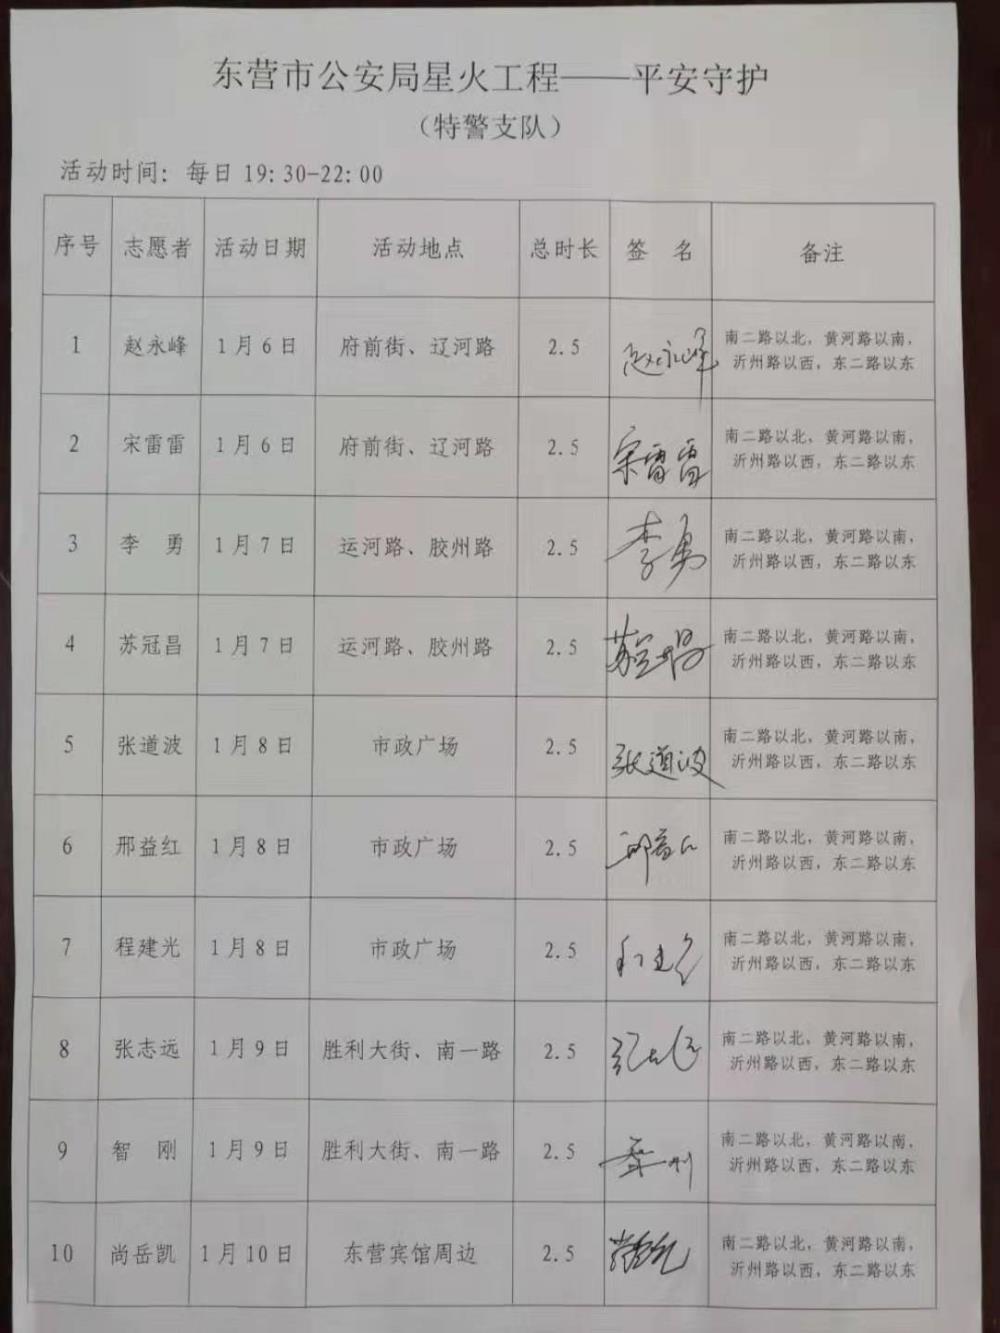 东营市公安局星火工程——平安守护
（特警支队）
活动时间：每日 19:30-22:00
序号 志愿者 活动日期 活动地点 总时长 签 名 备注
1 赵永峰 1月6日 府前街、辽河路 2.5 赵永峰 南二路以北，黄河路以南，
沂州路以西，东二路以东
2 宋雷雷 1月6日 府前街、辽河路 2.5 宋雷雷 南二路以北，黄河路以南，
沂州路以西，东二路以东
3 李 勇 1月7日 运河路、胶州路 2.5 李勇 南二路以北，黄河路以南，
沂州路以西，东二路以东
4 苏冠昌 1月7日 运河路、胶州路 2.5 苏冠昌 南二路以北，黄河路以南，
沂州路以西，东二路以东
5 张道波 1月8日 市政广场 2.5 张道波 南二路以北，黄河路以南，
沂州路以西，东二路以东
6 邢益红 1月8日 市政广场 2.5 邢益红 南二路以北，黄河路以南，
沂州路以西，东二路以东
7 程建光 1月8日 市政广场 2.5 程建光 南二路以北，黄河路以南，
沂州路以西，东二路以东
8 张志远 1月9日 胜利大街、南一路 2.5 张志远 南二路以北，黄河路以南，
沂州路以西，东二路以东
9 智 刚 1月9日 胜利大街、南一路 2.5 智刚 南二路以北，黄河路以南，
沂州路以西，东二路以东
10 尚岳凯 1月10日 东营宾馆周边 2.5 尚岳凯 南二路以北，黄河路以南，
沂州路以西，东二路以东